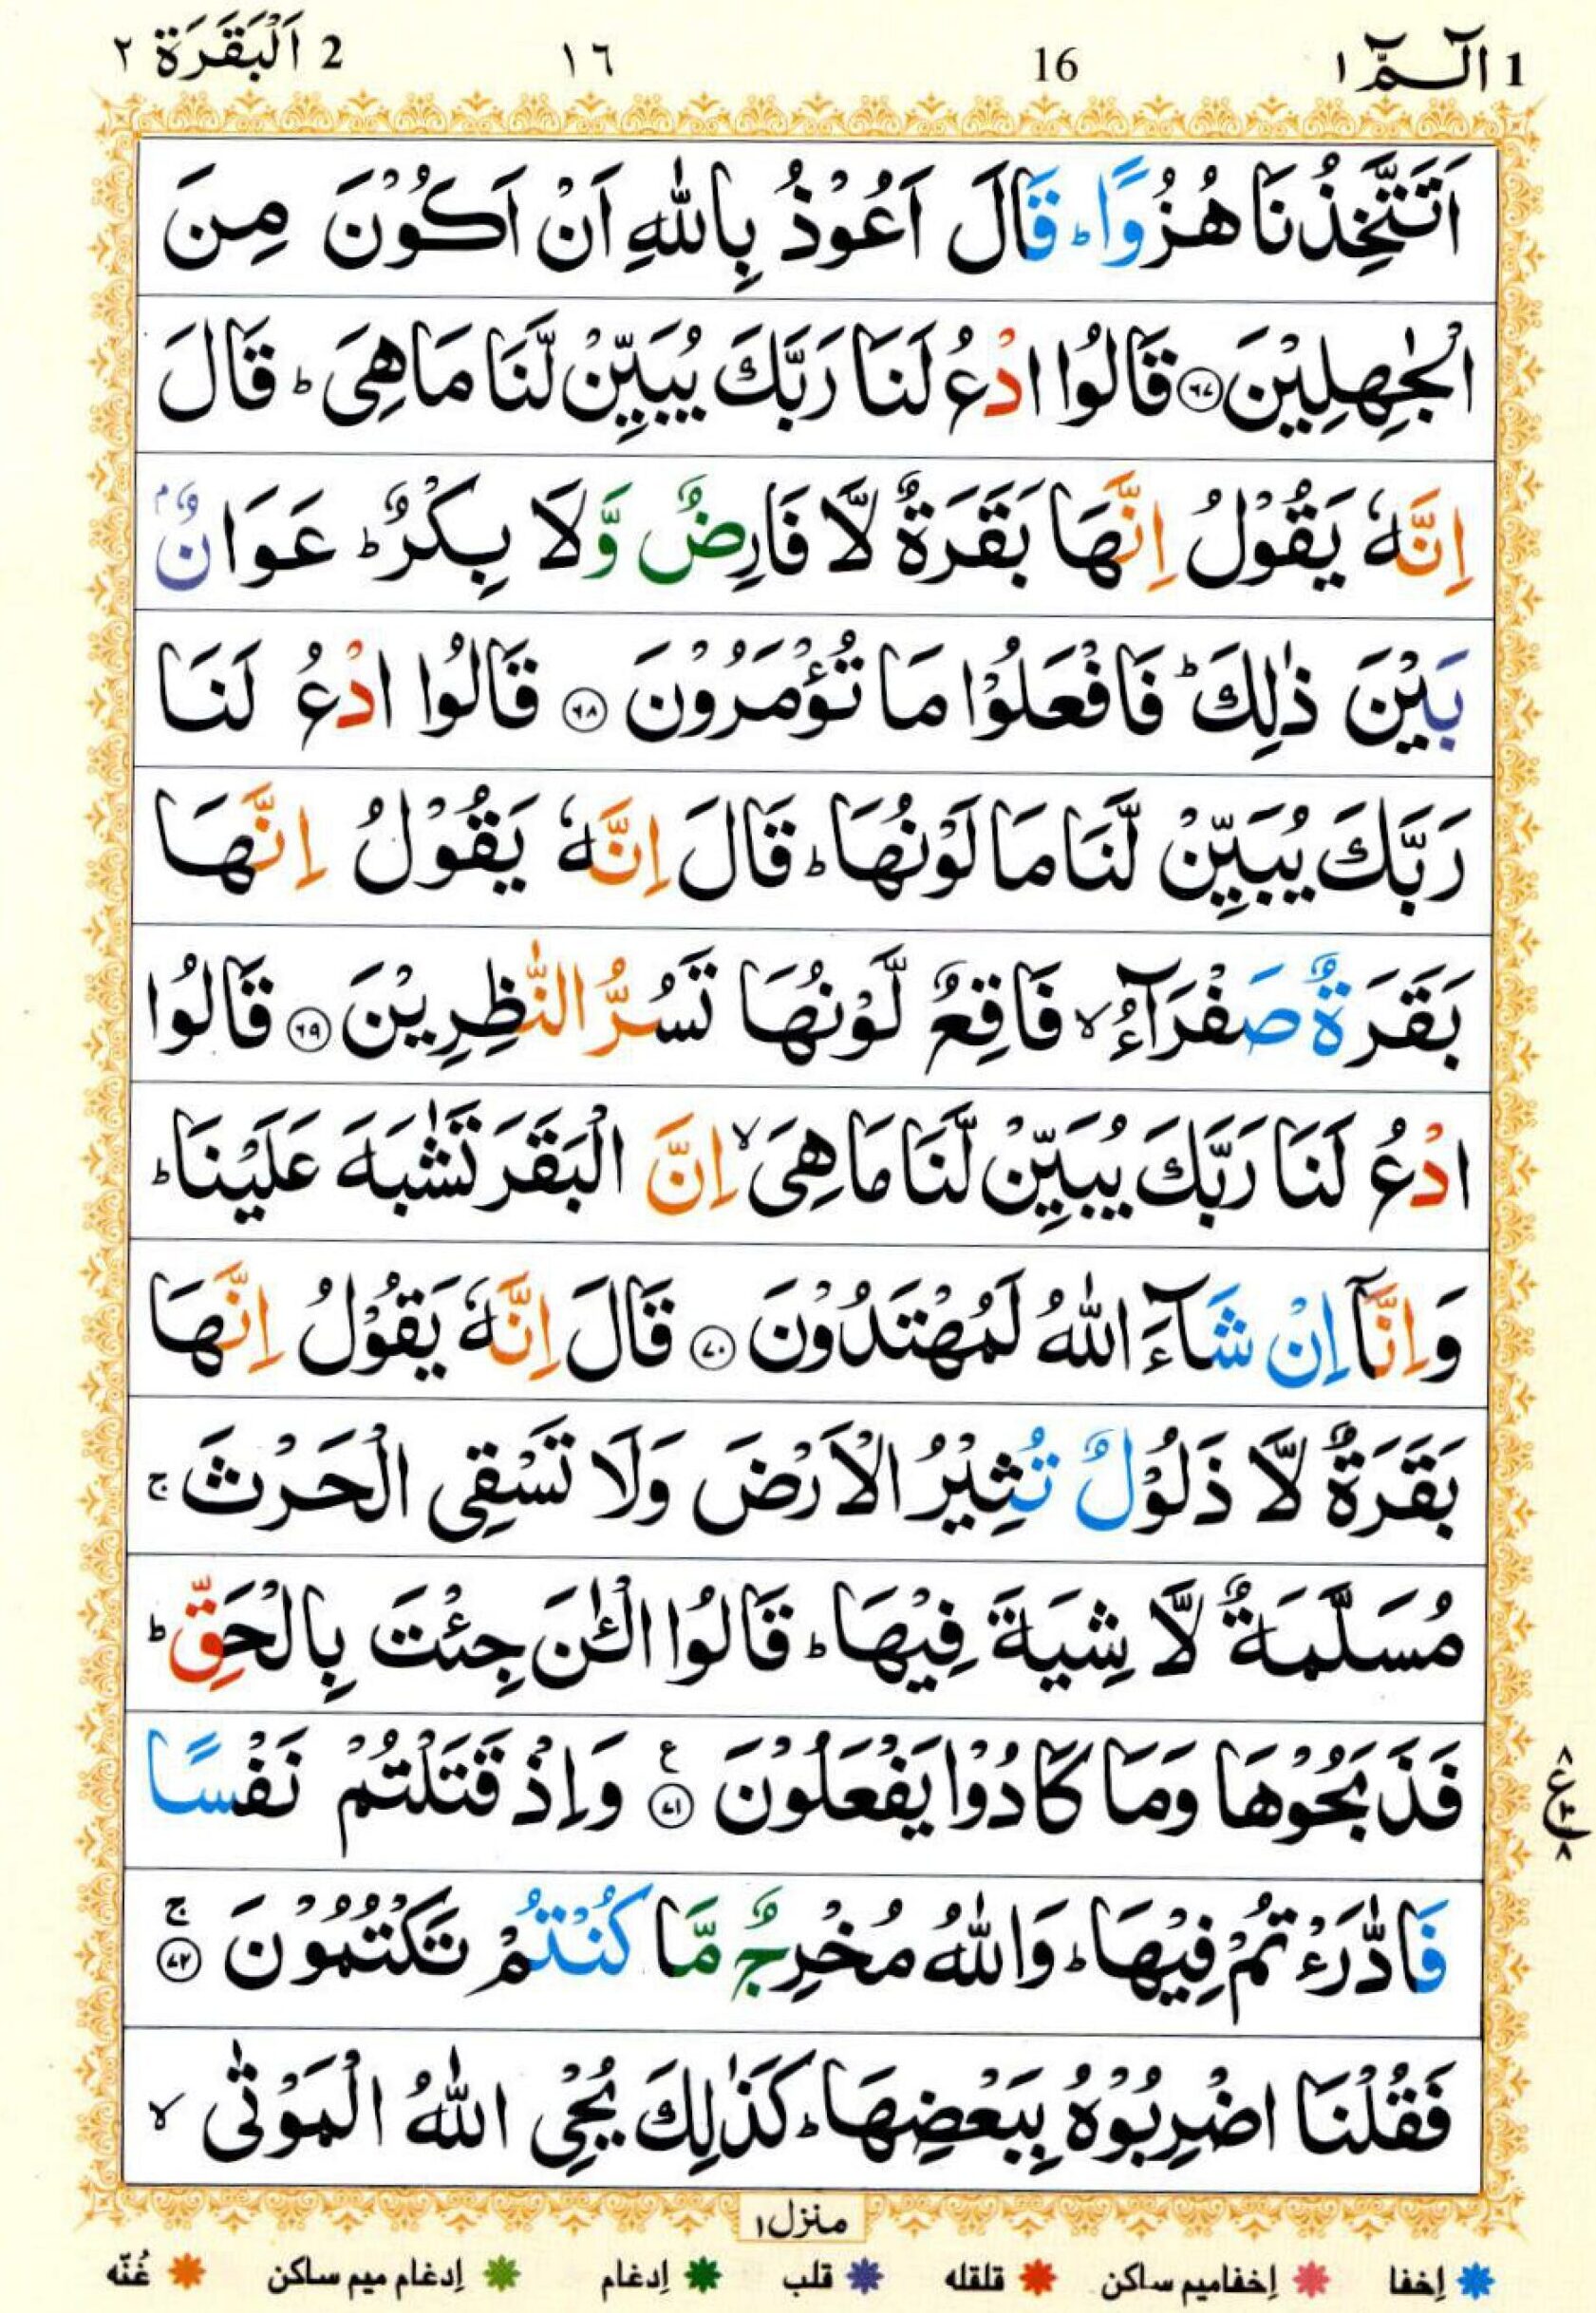 1 الٓـمّٓ ١ 16 ١٦ 2 اَلْبَقَرَة ٢
اَتَتَّخِذُنَا هُزُوًا ؕ قَالَ اَعُوْذُ بِاللّٰهِ اَنْ اَكُوْنَ مِنَ
الْجٰهِلِيْنَ ۝٦٧ قَالُوا ادْعُ لَنَا رَبَّكَ يُبَيِّنْ لَّنَا مَا هِىَ ؕ قَالَ
اِنَّهٗ يَقُوْلُ اِنَّهَا بَقَرَةٌ لَّا فَارِضٌ وَّلَا بِكْرٌ ؕ عَوَانٌۢ
بَيْنَ ذٰلِكَ ؕ فَافْعَلُوْا مَا تُؤْمَرُوْنَ ۝٦٨ قَالُوا ادْعُ لَنَا
رَبَّكَ يُبَيِّنْ لَّنَا مَا لَوْنُهَا ؕ قَالَ اِنَّهٗ يَقُوْلُ اِنَّهَا
بَقَرَةٌ صَفْرَآءُ ۙ فَاقِعٌ لَّوْنُهَا تَسُرُّ النّٰظِرِيْنَ ۝٦٩ قَالُوا
ادْعُ لَنَا رَبَّكَ يُبَيِّنْ لَّنَا مَا هِىَ ۙ اِنَّ الْبَقَرَ تَشٰبَهَ عَلَيْنَا ؕ
وَاِنَّاۤ اِنْ شَآءَ اللّٰهُ لَمُهْتَدُوْنَ ۝٧٠ قَالَ اِنَّهٗ يَقُوْلُ اِنَّهَا
بَقَرَةٌ لَّا ذَلُوْلٌ تُثِيْرُ الْاَرْضَ وَلَا تَسْقِى الْحَرْثَ ۚ
مُسَلَّمَةٌ لَّا شِيَةَ فِيْهَا ؕ قَالُوا الْـٰٔنَ جِئْتَ بِالْحَقِّ ؕ
فَذَبَحُوْهَا وَمَا كَادُوْا يَفْعَلُوْنَ ۝٧١ ع وَاِذْ قَتَلْتُمْ نَفْسًا
فَادّٰرَءْتُمْ فِيْهَا ؕ وَاللّٰهُ مُخْرِجٌ مَّا كُنْتُمْ تَكْتُمُوْنَ ۝٧٢ ۚ
فَقُلْنَا اضْرِبُوْهُ بِبَعْضِهَا ؕ كَذٰلِكَ يُحْىِ اللّٰهُ الْمَوْتٰى ۙ
منزل ١
إخفا إخفاميم ساكن قلقله قلب إدغام إدغام ميم ساكن غُنّه